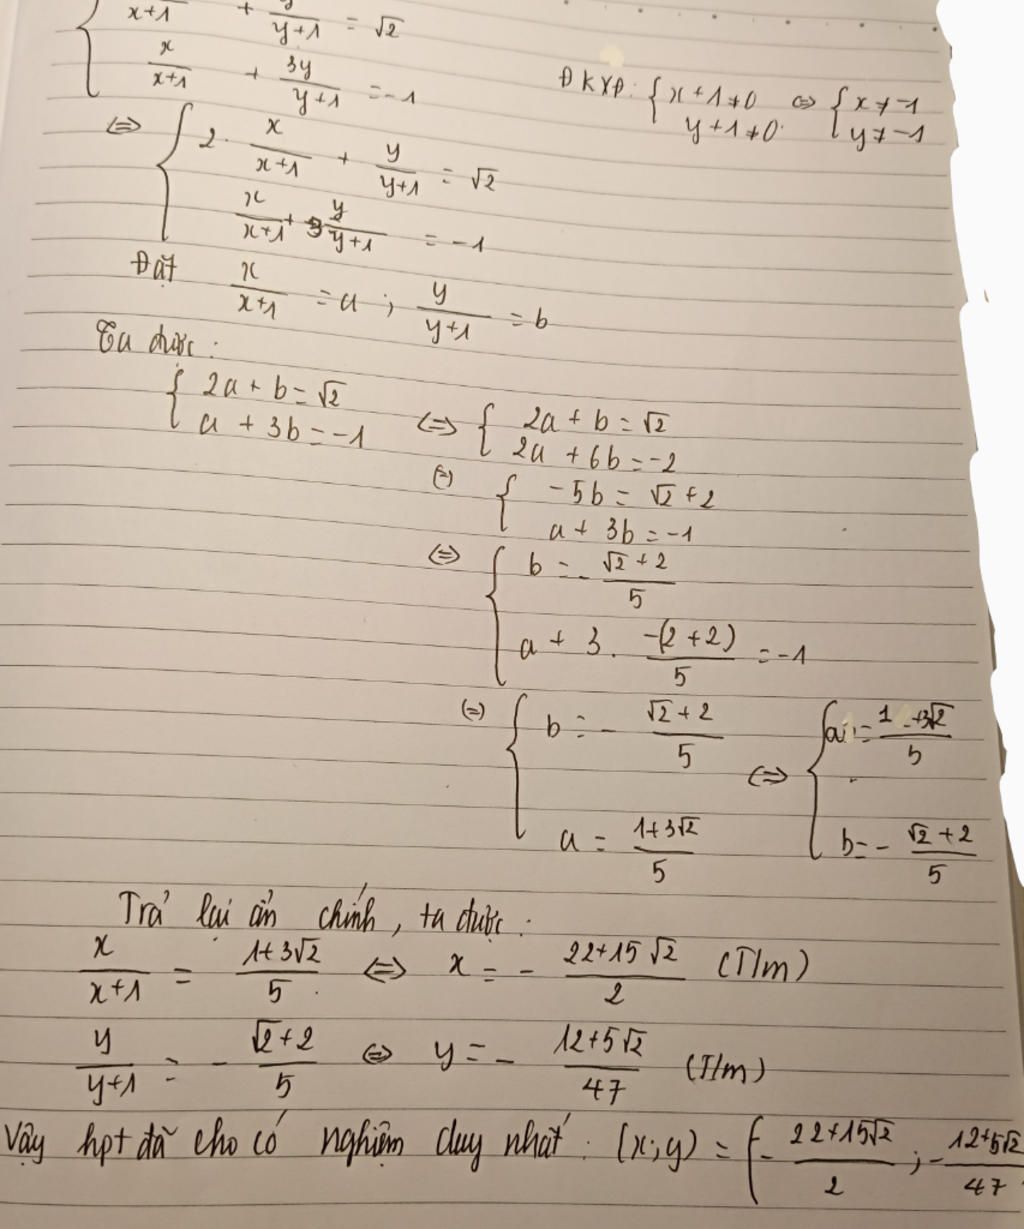 { x+1 + y/(y+1) = √2
x/(x+1) + 3y/(y+1) = -1
ĐKXĐ: { x+1≠0 ⇔ { x≠-1
y+1≠0 y≠-1
⇔ { 2. x/(x+1) + y/(y+1) = √2
x/(x+1) + 3 y/(y+1) = -1
Đặt x/(x+1) = a ; y/(y+1) = b
Ta được:
{ 2a + b = √2 ⇔ { 2a + b = √2
a + 3b = -1 2a + 6b = -2
(=) { -5b = √2 + 2
a + 3b = -1
⇔ { b = - (√2 + 2)/5
a + 3. -(2+2)/5 = -1
(=) { b = - (√2 + 2)/5 ⇔ { a = (1+3√2)/5
a = (1+3√2)/5 b = - (√2 + 2)/5
Trả lại ẩn chính, ta được:
x/(x+1) = (1+3√2)/5 ⇔ x = - (22+15√2)/2 (T/m)
y/(y+1) = - (√2+2)/5 ⇔ y = - (12+5√2)/47 (T/m)
Vậy hpt đã cho có nghiệm duy nhất: (x;y) = (- (22+15√2)/2 ; - (12+5√2)/47